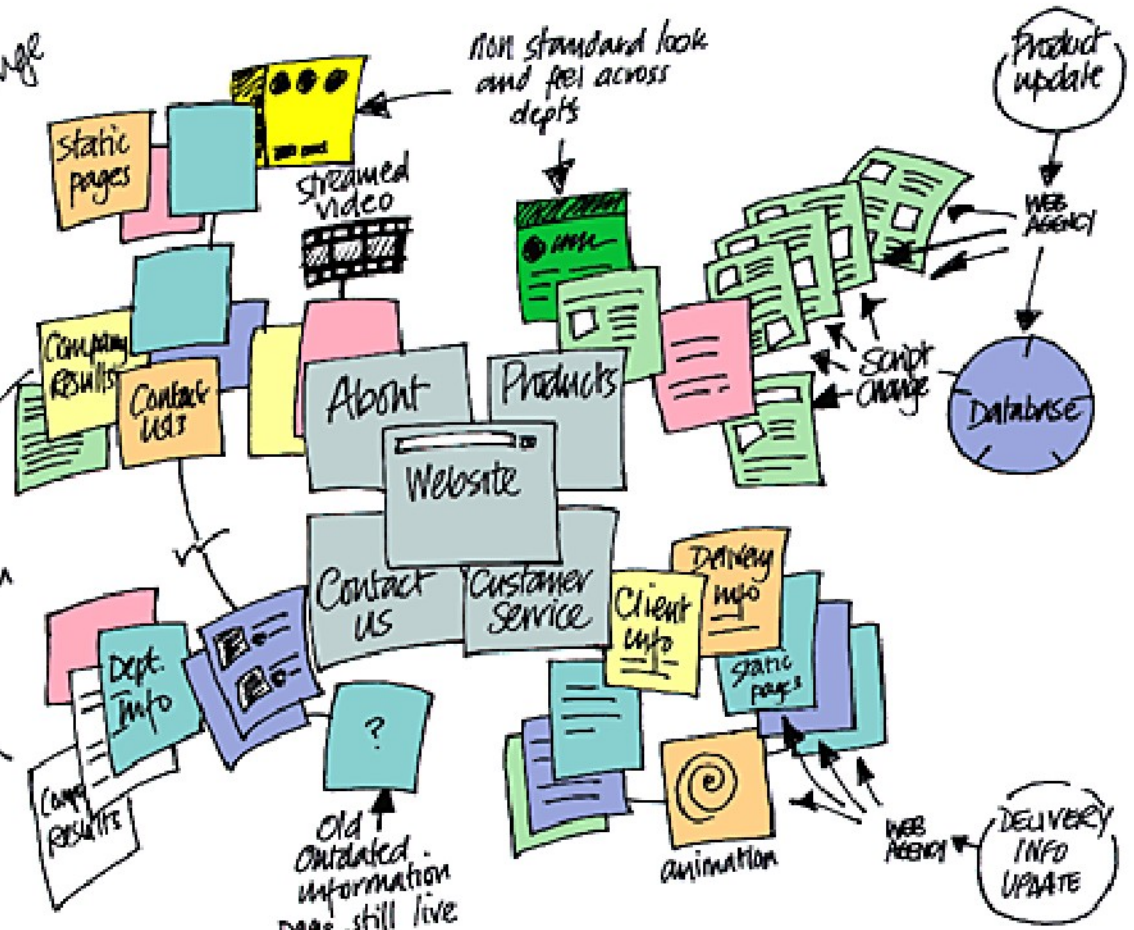 non standard look
and feel across
depts
Product
update
static
pages
streamed
video
WEB
AGENCY
Company
Results
Contact
us?
About
Products
Script
change
Database
Website
Contact
us
Customer
Service
Client
info
Delivery
info
static
pages
Dept.
Info
?
Results
Old
Outdated
information
page still live
animation
WEB
AGENCY
DELIVERY
INFO
UPDATE